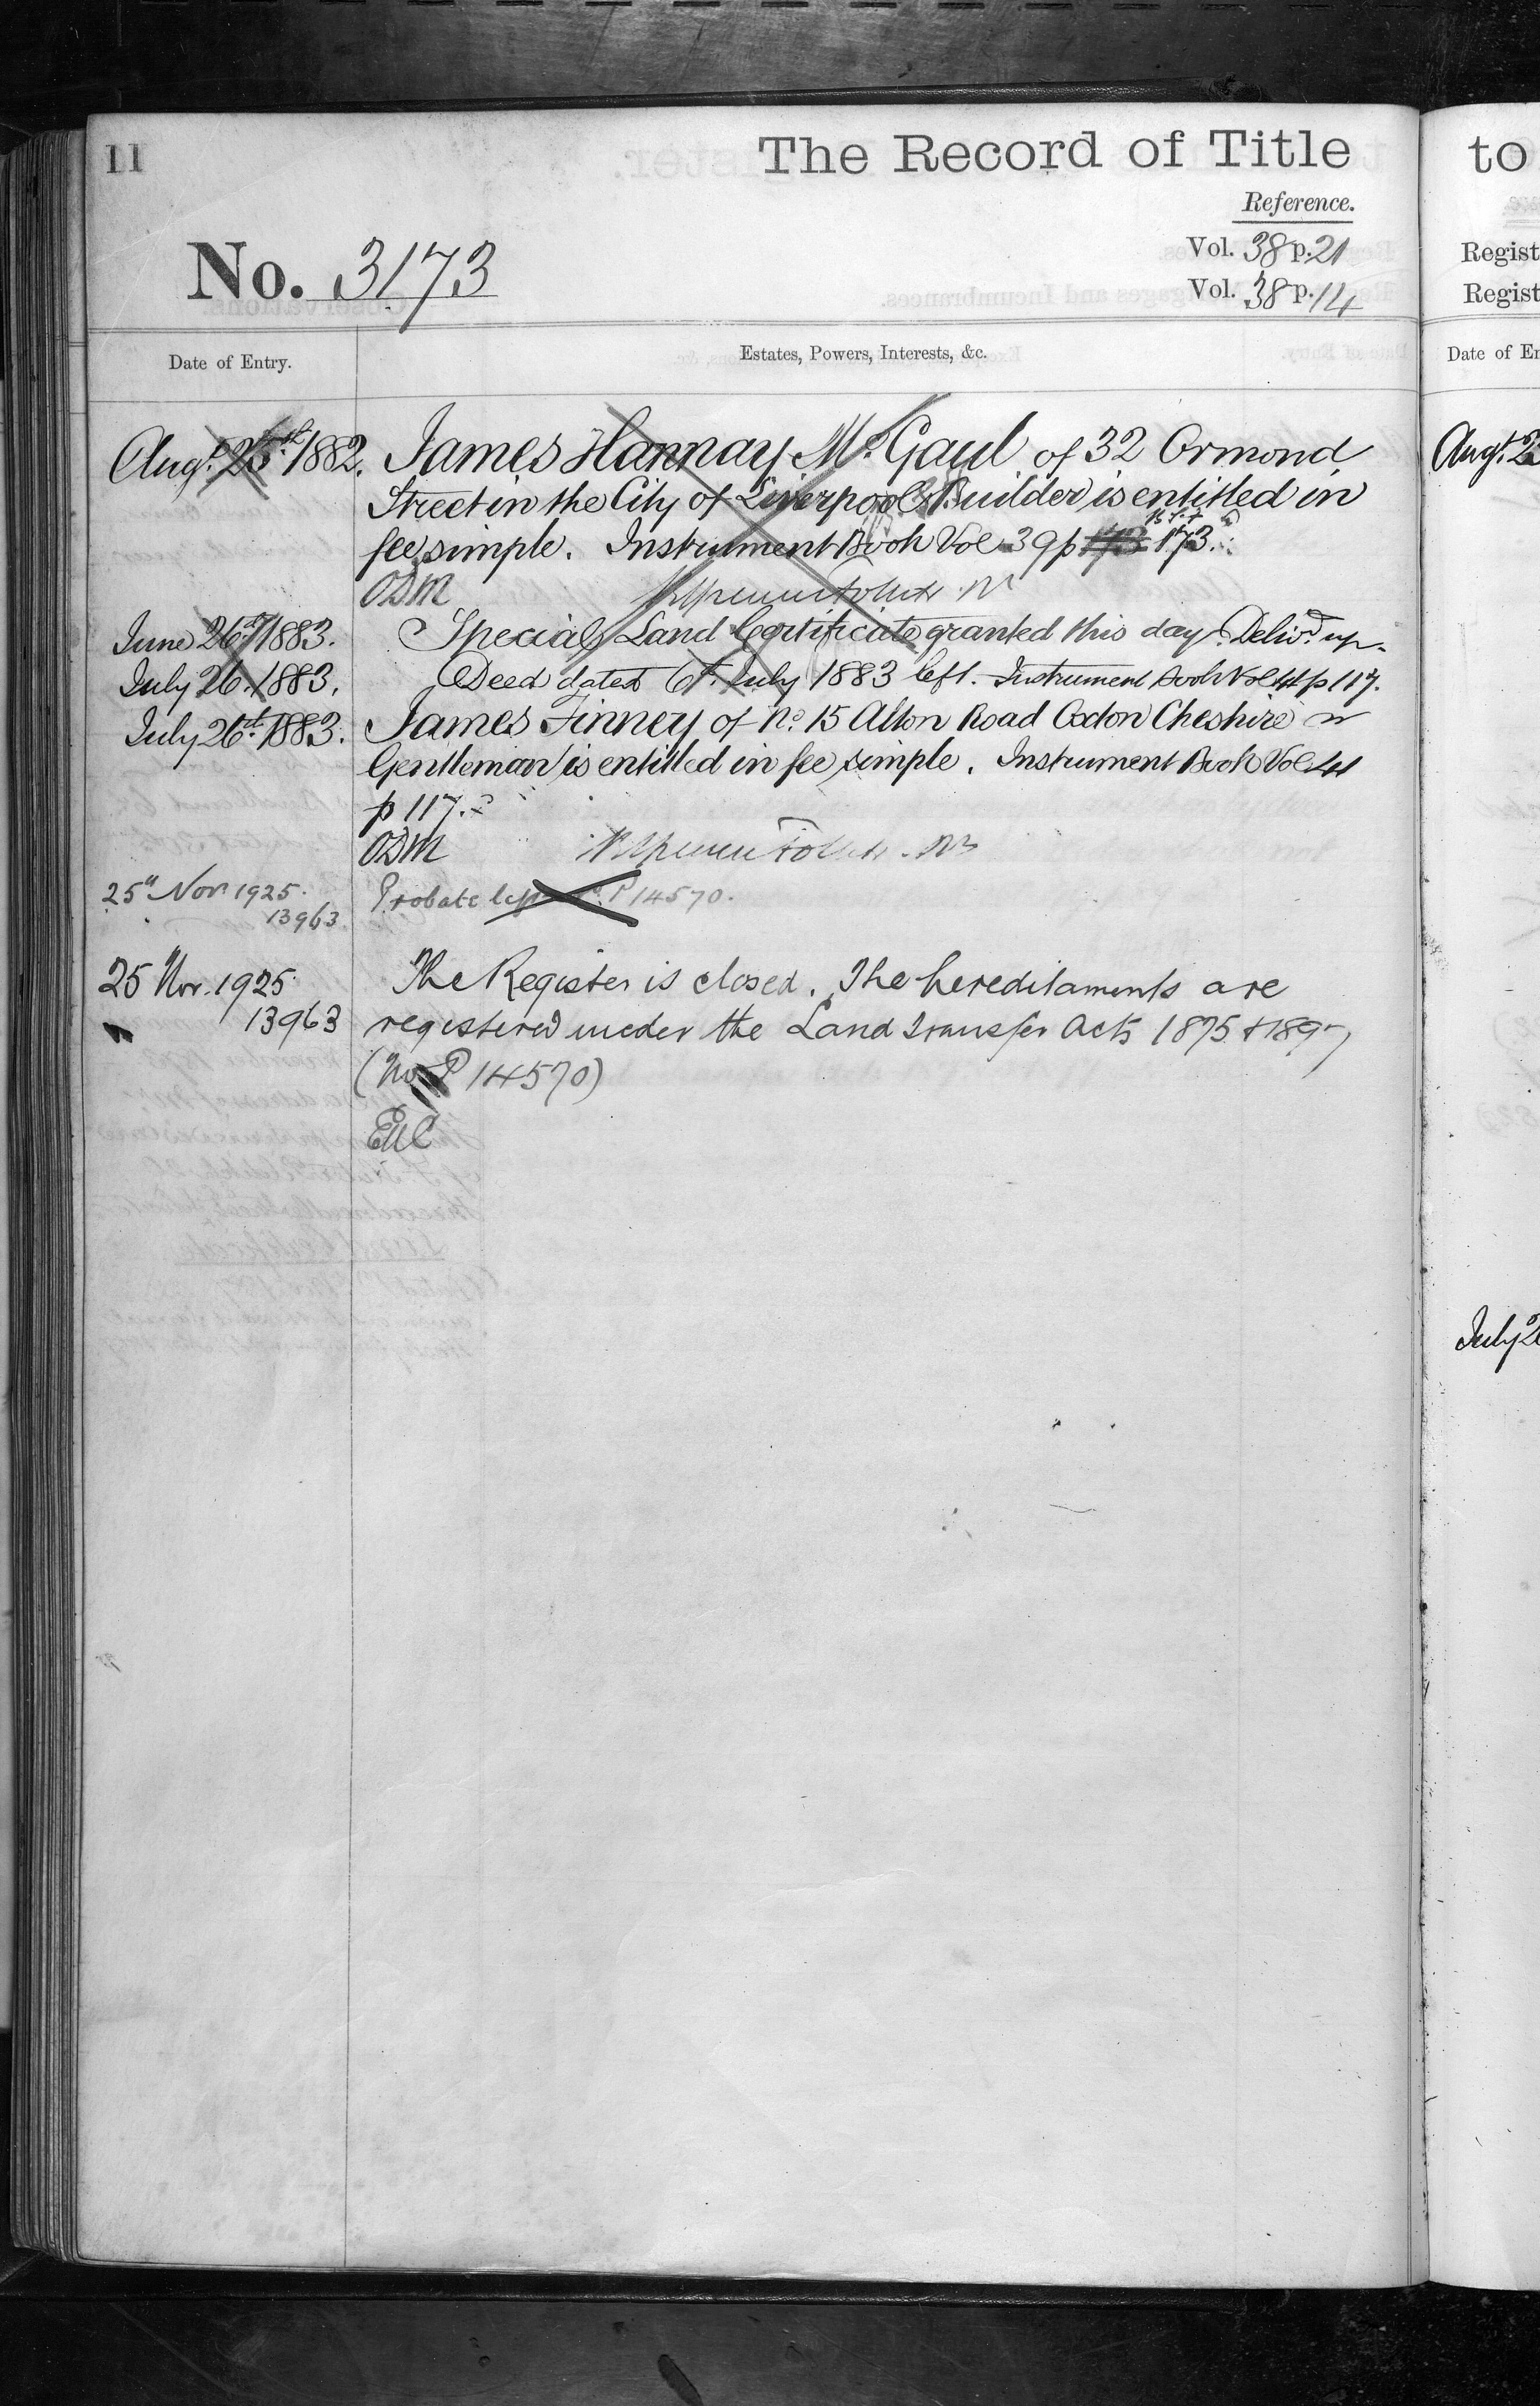 11
The Record of Title
Reference.
No. 3173
Vol. 38 p. 21
Vol. 38 p. 14
Date of Entry.
Estates, Powers, Interests, &c.
Augt. 25th 1882. James Hannay McGaul of 32 Ormond
Street in the City of Liverpool Builder is entitled in
fee simple. Instrument Book Vol 39 p 173.
ODM
June 26th 1883. Special Land Certificate granted this day. Delivd. up.
July 26. 1883. Deed dated 6th July 1883 left. Instrument Book Vol 41 p 117.
July 26th 1883. James Finney of No. 15 Alton Road Oxton Cheshire
Gentleman is entitled in fee simple. Instrument Book Vol. 41
p 117.
ODM
25th Nov 1925. Probate P 14570.
13963
25 Nov. 1925 The Register is closed. The hereditaments are
13963 registered under the Land Transfer Acts 1875 & 1897
(No P 14570)
to
Regist
Regist
Date of En
Augt. 2
July 2